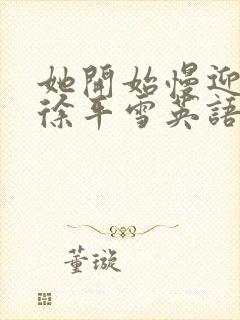 她開始慢迎
徐年雪英語
董璇